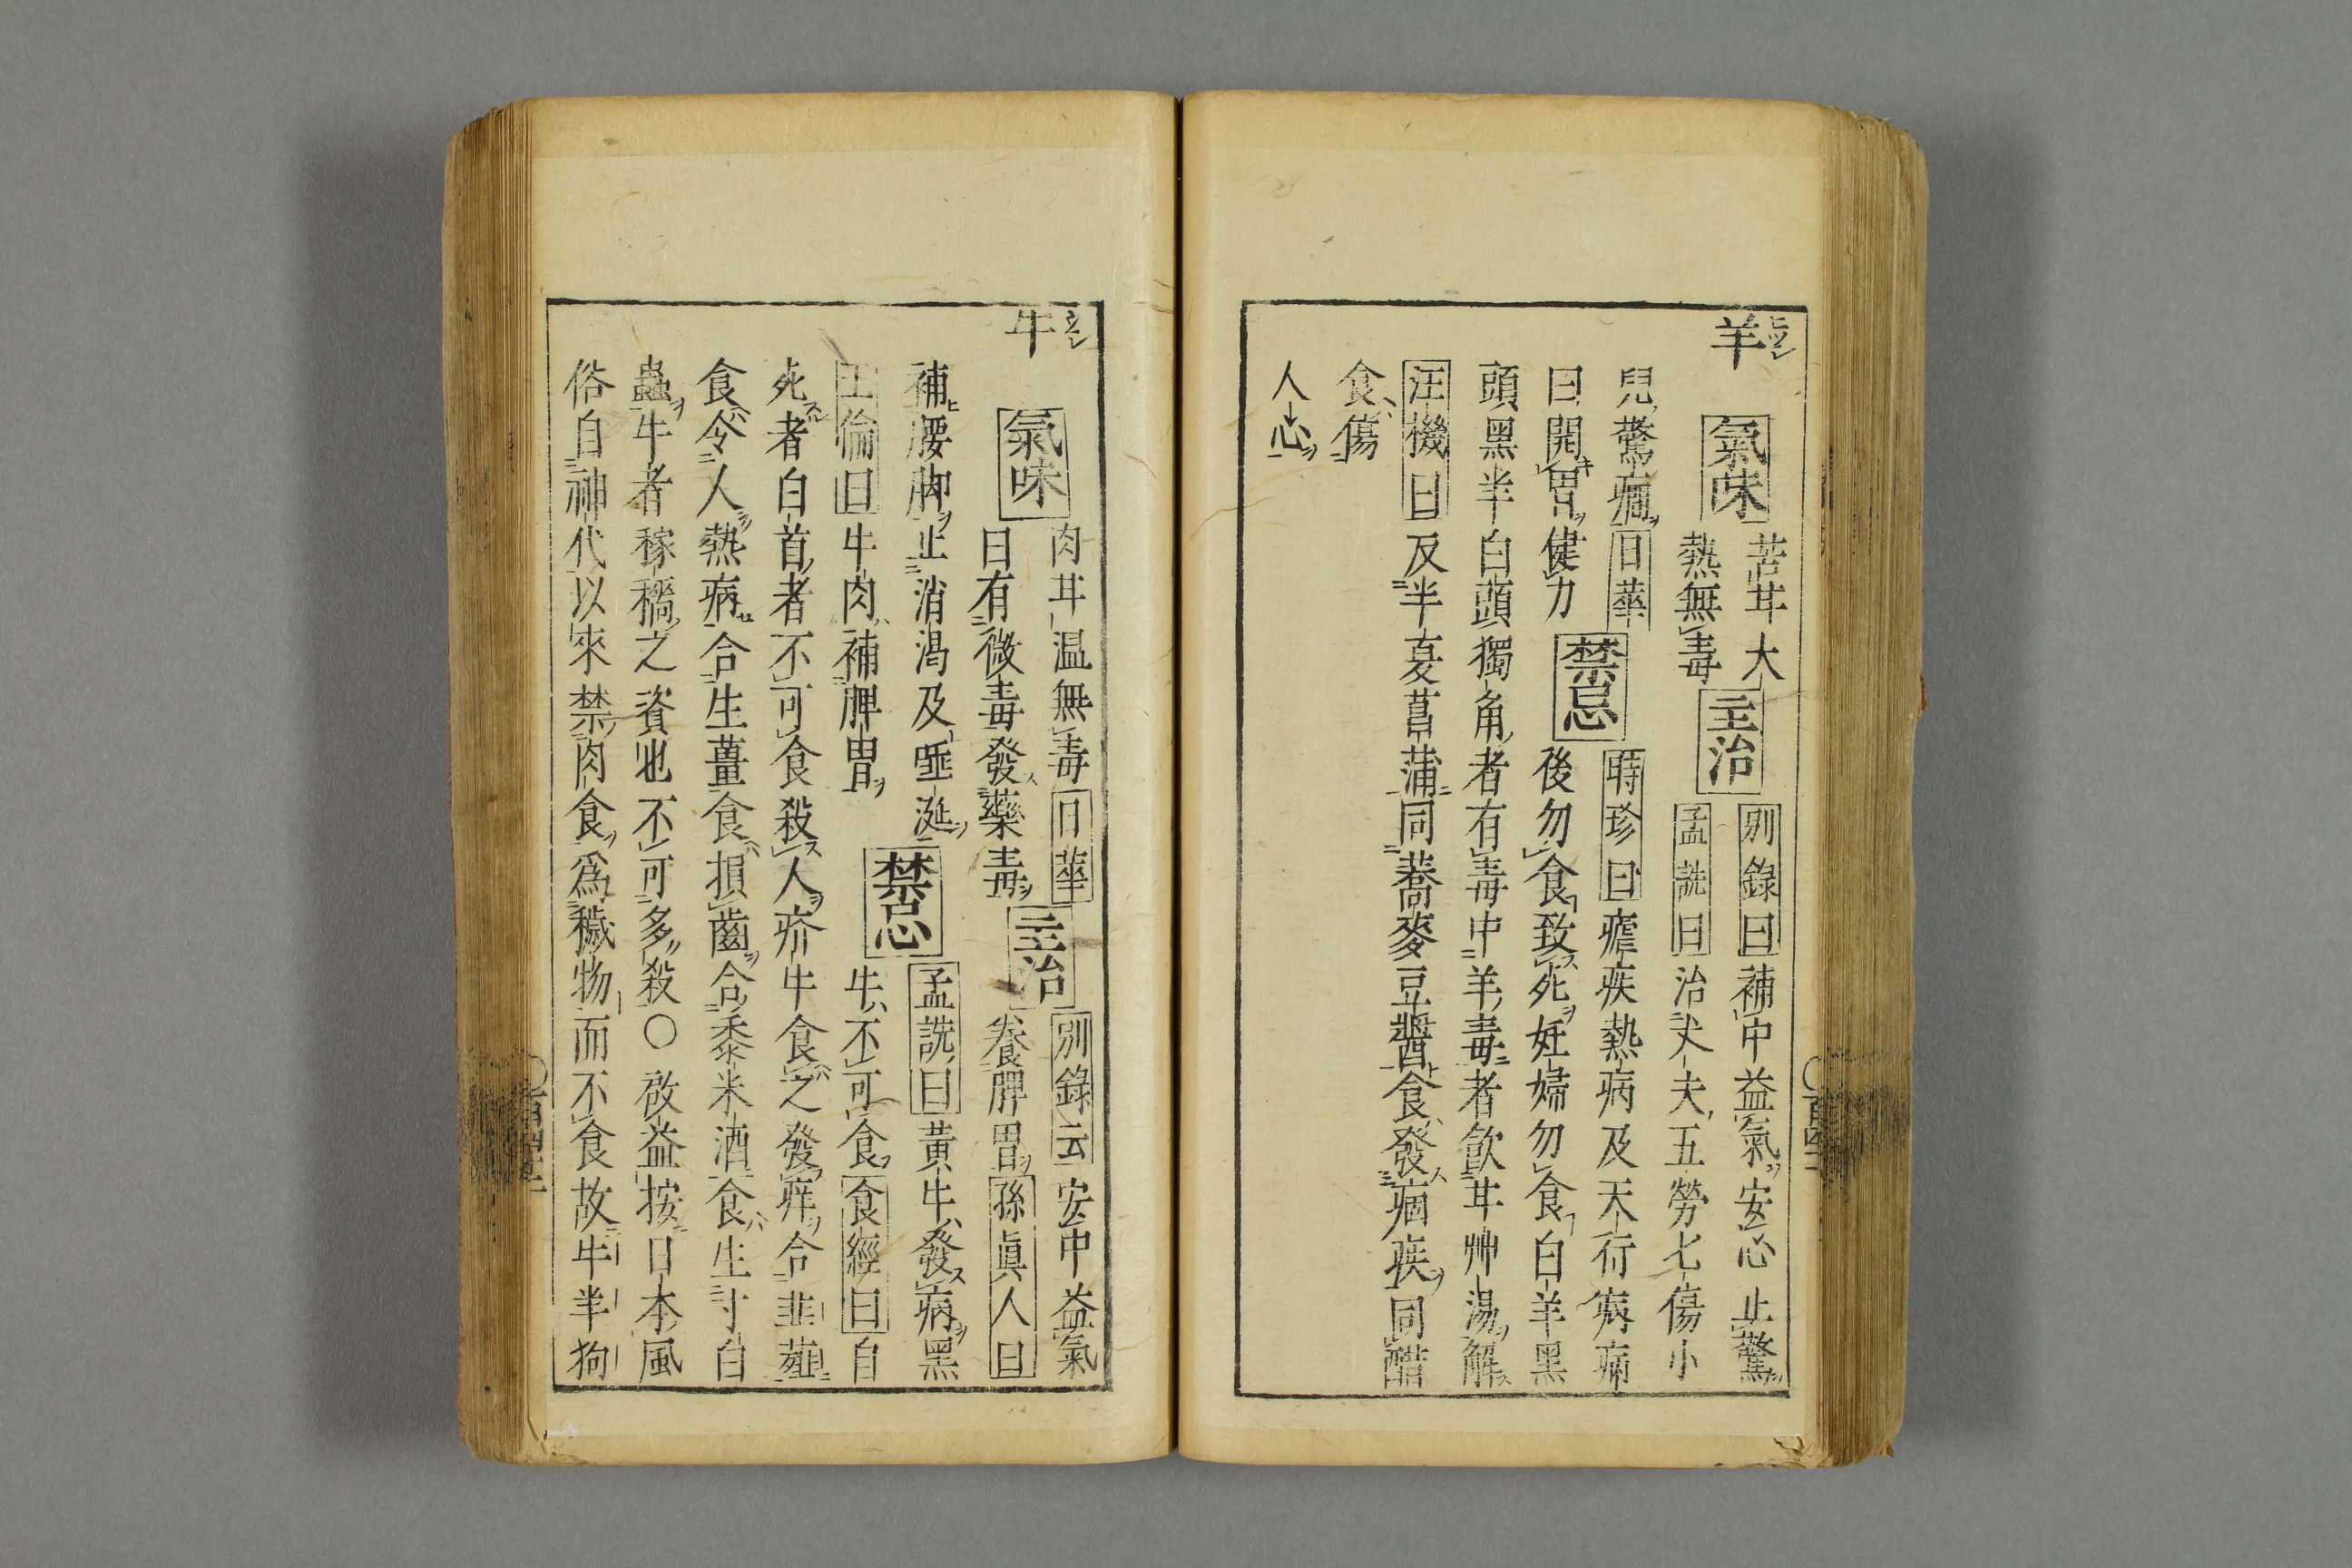 羊 氣味 苦甘大
熱無毒 主治 別錄曰補中益氣安心止驚
孟詵曰治丈夫五勞七傷小
兒驚癇 日華
曰開胃健力 禁忌 時珍曰瘧疾熱病及天行病病
後勿食致死妊婦勿食白羊黑
頭黑羊白頭獨角者有毒中羊毒者飲甘艸湯解
汪機曰反半夏菖蒲同蕎麥豆醬食發痼疾同醋
食傷
人心
牛 氣味 肉甘温無毒 日華
曰有微毒發藥毒 主治 別錄云安中益氣
養脾胃 孫眞人曰
補腰脚止消渇及唾涎 禁忌 孟詵曰黄牛發病黑
牛不可食 食經曰自
王倫曰牛肉補脾胃
死者白首者不可食殺人疥牛食之發痒合韭薤
食令人熱病合生薑食損齒合黍米酒食生寸白
蟲牛者稼穡之資也不可多殺〇啟益按日本風
俗自神代以來禁肉食爲穢物而不食故牛羊狗